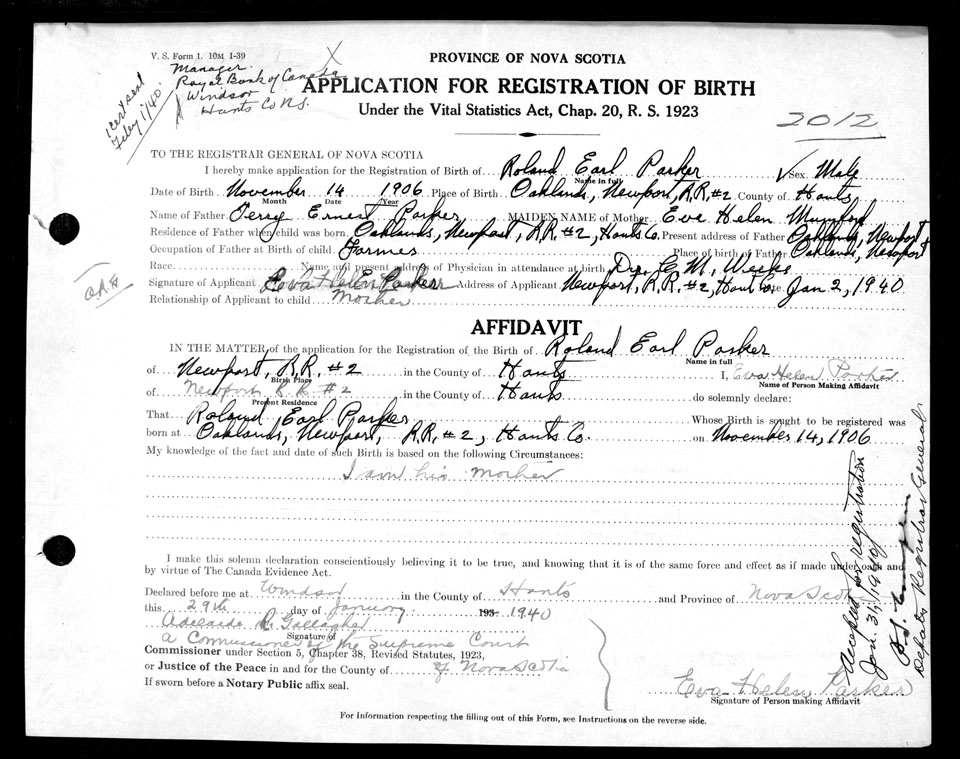 V. S. Form 1. 10M 1-39
Manager
Royal Bank of Canada
Windsor
Hants Co N.S.
1 cert sent
Feby 1/40
X
PROVINCE OF NOVA SCOTIA
APPLICATION FOR REGISTRATION OF BIRTH
Under the Vital Statistics Act, Chap. 20, R. S. 1923
2012
TO THE REGISTRAR GENERAL OF NOVA SCOTIA
I hereby make application for the Registration of Birth of Roland Earl Parker Sex Male
Name in full
Date of Birth November 14 1906 Place of Birth Oaklands, Newport, R.R. #2 County of Hants
Month Date Year
Name of Father Perry Ernest Parker MAIDEN NAME of Mother Eva Helen Mumford
Residence of Father when child was born Oaklands, Newport, R.R. #2, Hants Co. Present address of Father Oaklands, Newport
Occupation of Father at Birth of child Farmer Place of Birth of Father Oaklands, Newport
Race Name and present address of Physician in attendance at birth Dr. C. M. Weeks
Signature of Applicant Eva Helen Parker Address of Applicant Newport, R.R. #2, Hants Co. Date Jan 2, 1940
Relationship of Applicant to child Mother
AFFIDAVIT
IN THE MATTER of the application for the Registration of the Birth of Roland Earl Parker
Name in full
of Newport, R.R. #2 in the County of Hants I, Eva Helen Parker
Birth Place Name of Person Making Affidavit
of Newport R R #2 in the County of Hants do solemnly declare:
Present Residence
That Roland Earl Parker Whose Birth is sought to be registered was
born at Oaklands, Newport, R.R. #2, Hants Co. on November 14, 1906
My knowledge of the fact and date of such Birth is based on the following Circumstances:
I am his mother
I make this solemn declaration conscientiously believing it to be true, and knowing that it is of the same force and effect as if made under oath and
by virtue of The Canada Evidence Act.
Declared before me at Windsor in the County of Hants and Province of Nova Scotia
this 29th day of January 193 1940
Adelaide R. Gallagher
Signature of
a Commissioner of the Supreme Court
Commissioner under Section 5, Chapter 38, Revised Statutes, 1923,
or Justice of the Peace in and for the County of of Nova Scotia
If sworn before a Notary Public affix seal.
Eva Helen Parker
Signature of Person making Affidavit
For Information respecting the filling out of this Form, see Instructions on the reverse side.
Accepted for registration
Jan. 31, 1940
Deputy Registrar General